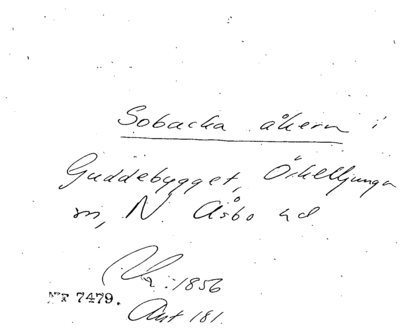 Sobacka åkern i
Guddebygget, Örkelljunga
sn, N. Åsbo hd
:1856
Nr 7479.
Ant 181.